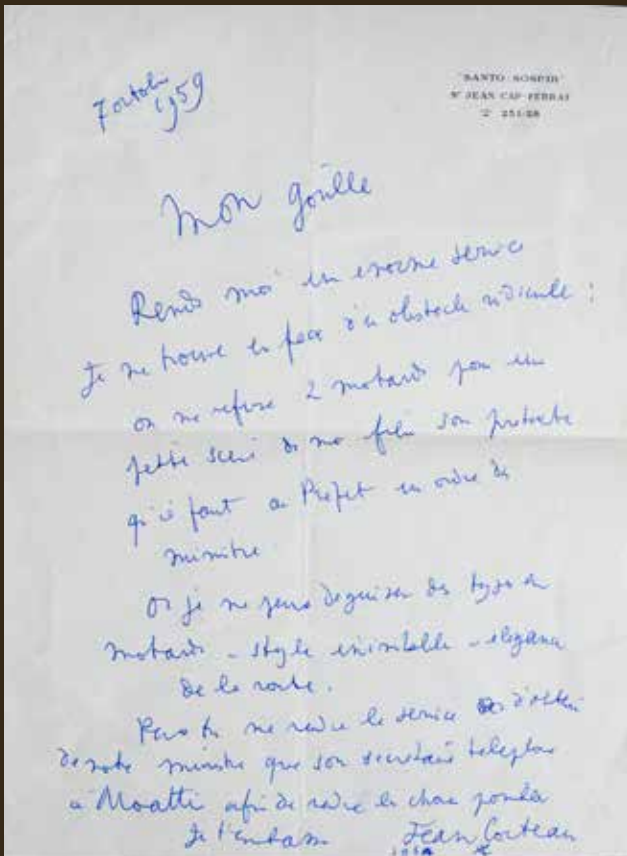 7 octobre
1959
"SANTO SOSPIR"
St JEAN CAP FERRAT
251-28
Mon
Rends moi un enorme service
Je me trouve en face d'un obstacle ridicule :
on me refuse 2 motards pour une
petite scene de mon film sous pretexte
qu'il faut au Prefet un ordre du
ministre
Or je ne peux deguiser des types en
motards - style inimitable - elegance
de la route.
Peux tu me rendre le service d'obtenir
de notre ministre que son secretaire telephone
a Moatti afin de rendre la chose possible
Je t'embrasse Jean Cocteau